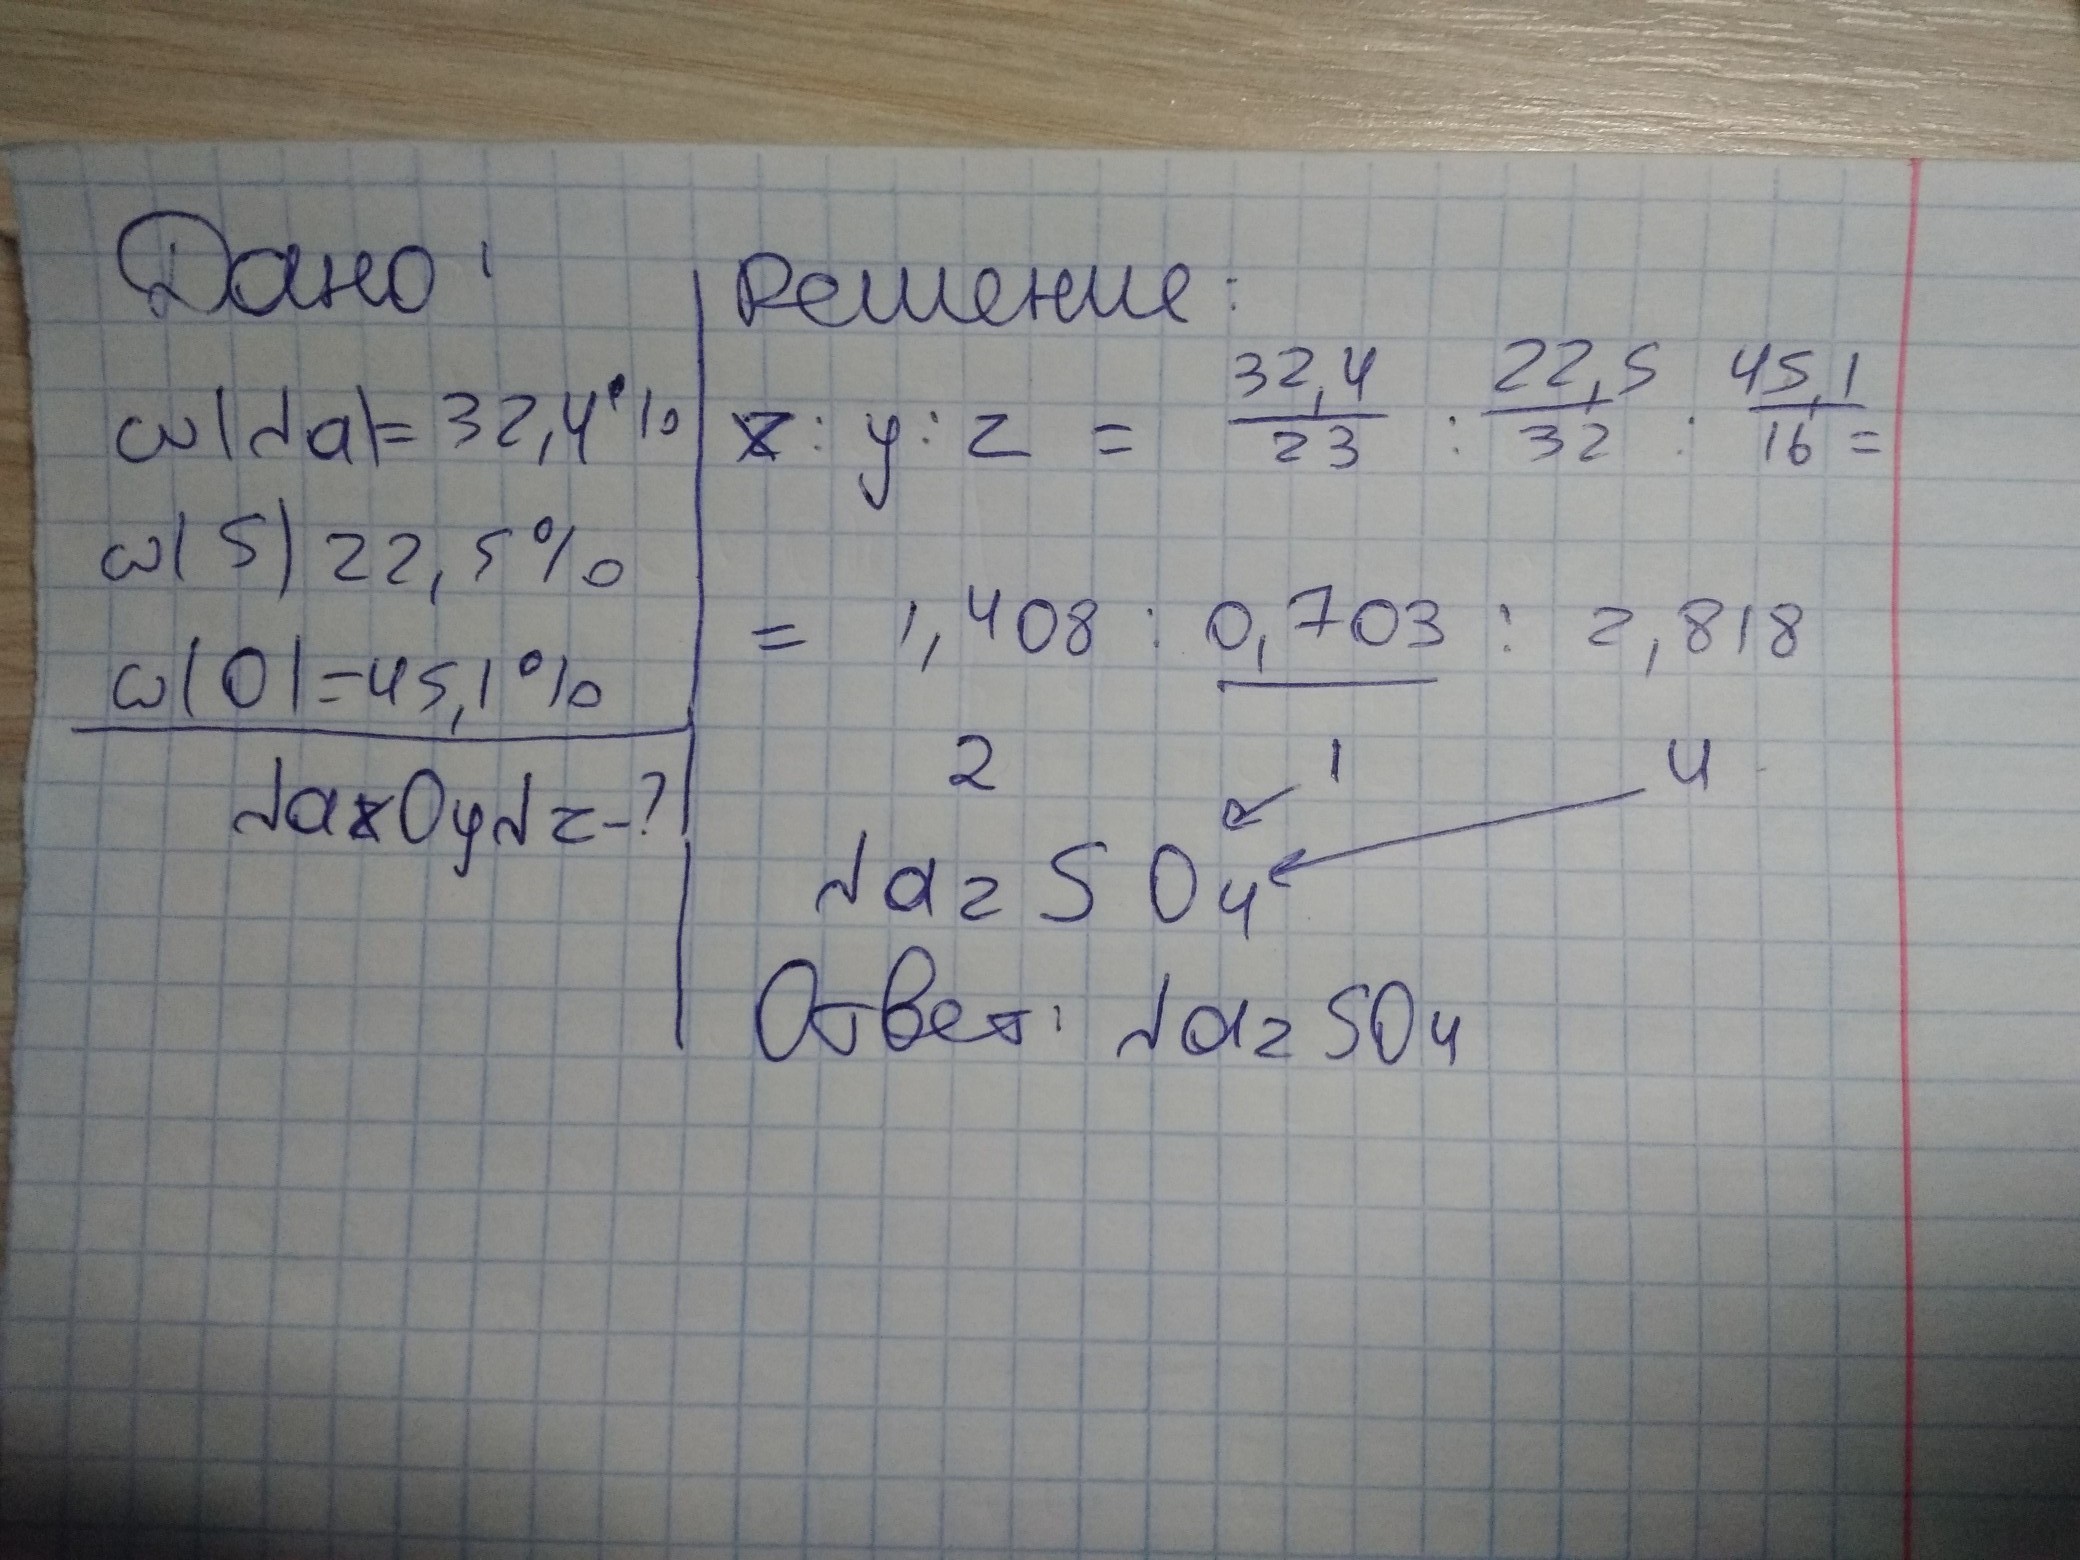 Дано:
w(Na)=32,4%
w(S) 22,5%
w(O)=45,1%
NaxOyNz-?
Решение:
x : y : z = 32,4/23 : 22,5/32 : 45,1/16 =
= 1,408 : 0,703 : 2,818
2 1 4
Na2SO4
Ответ: Na2SO4